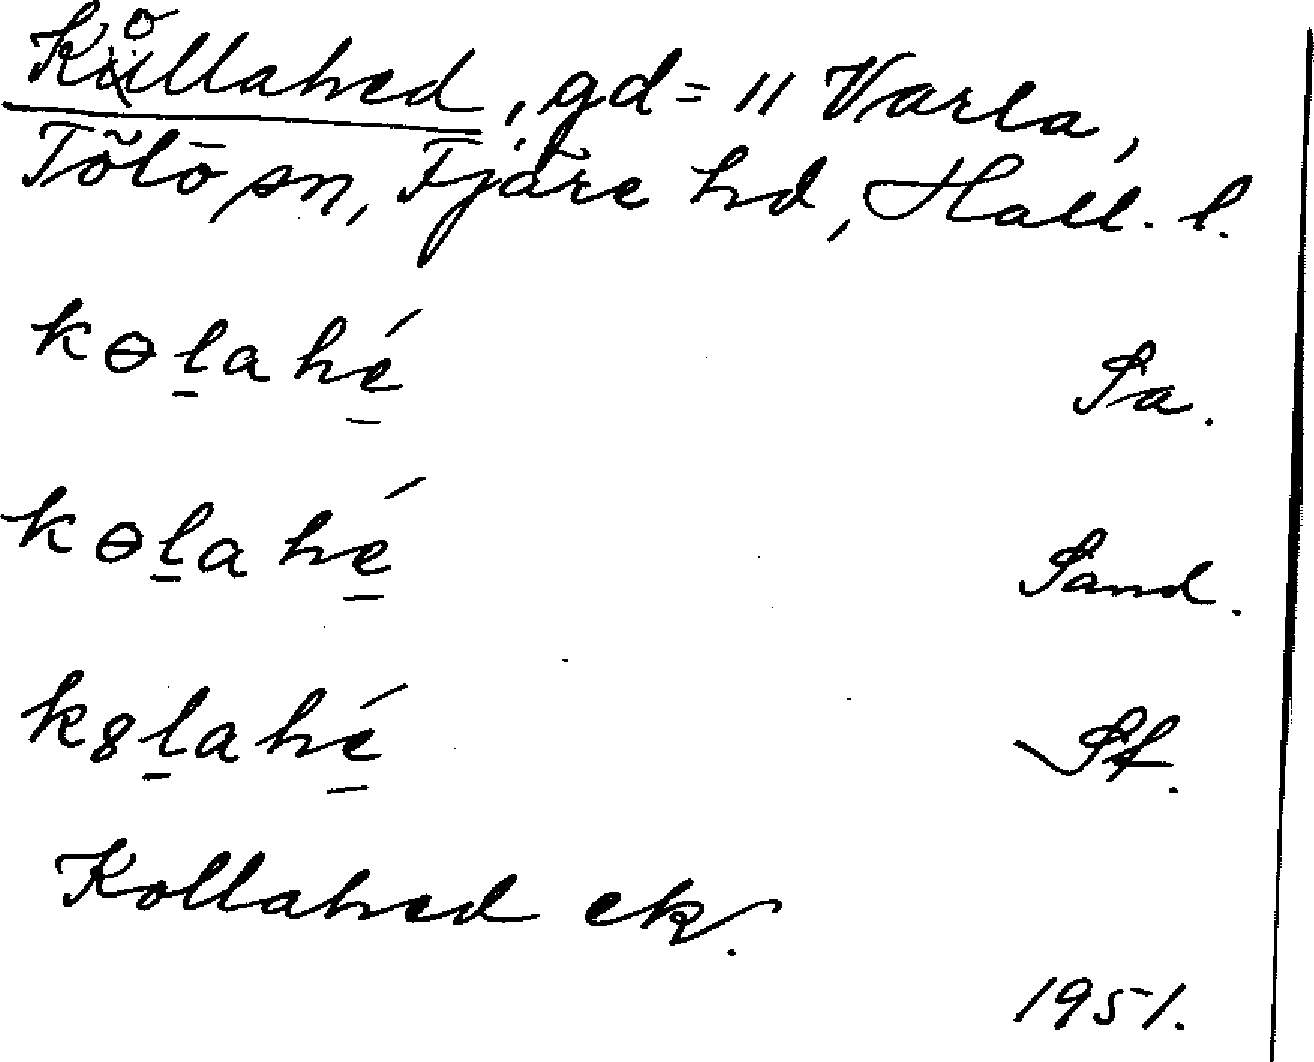 Kollahed, gd = 11 Varla,
Tölö sn, Fjäre hd, Hall. l.
kɵlahé Sa.
kɵlahé Sand.
k8lahé Sf.
Kollahed ek.
1951.